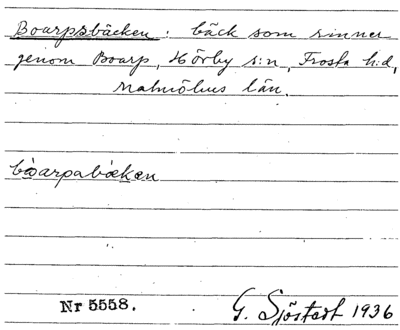 Boarpsbäcken: bäck som rinner
genom Boarp, Hörby s:n, Frosta h:d,
Malmöhus län.
bòarpabæken
Nr 5558.
G. Sjöstedt 1936